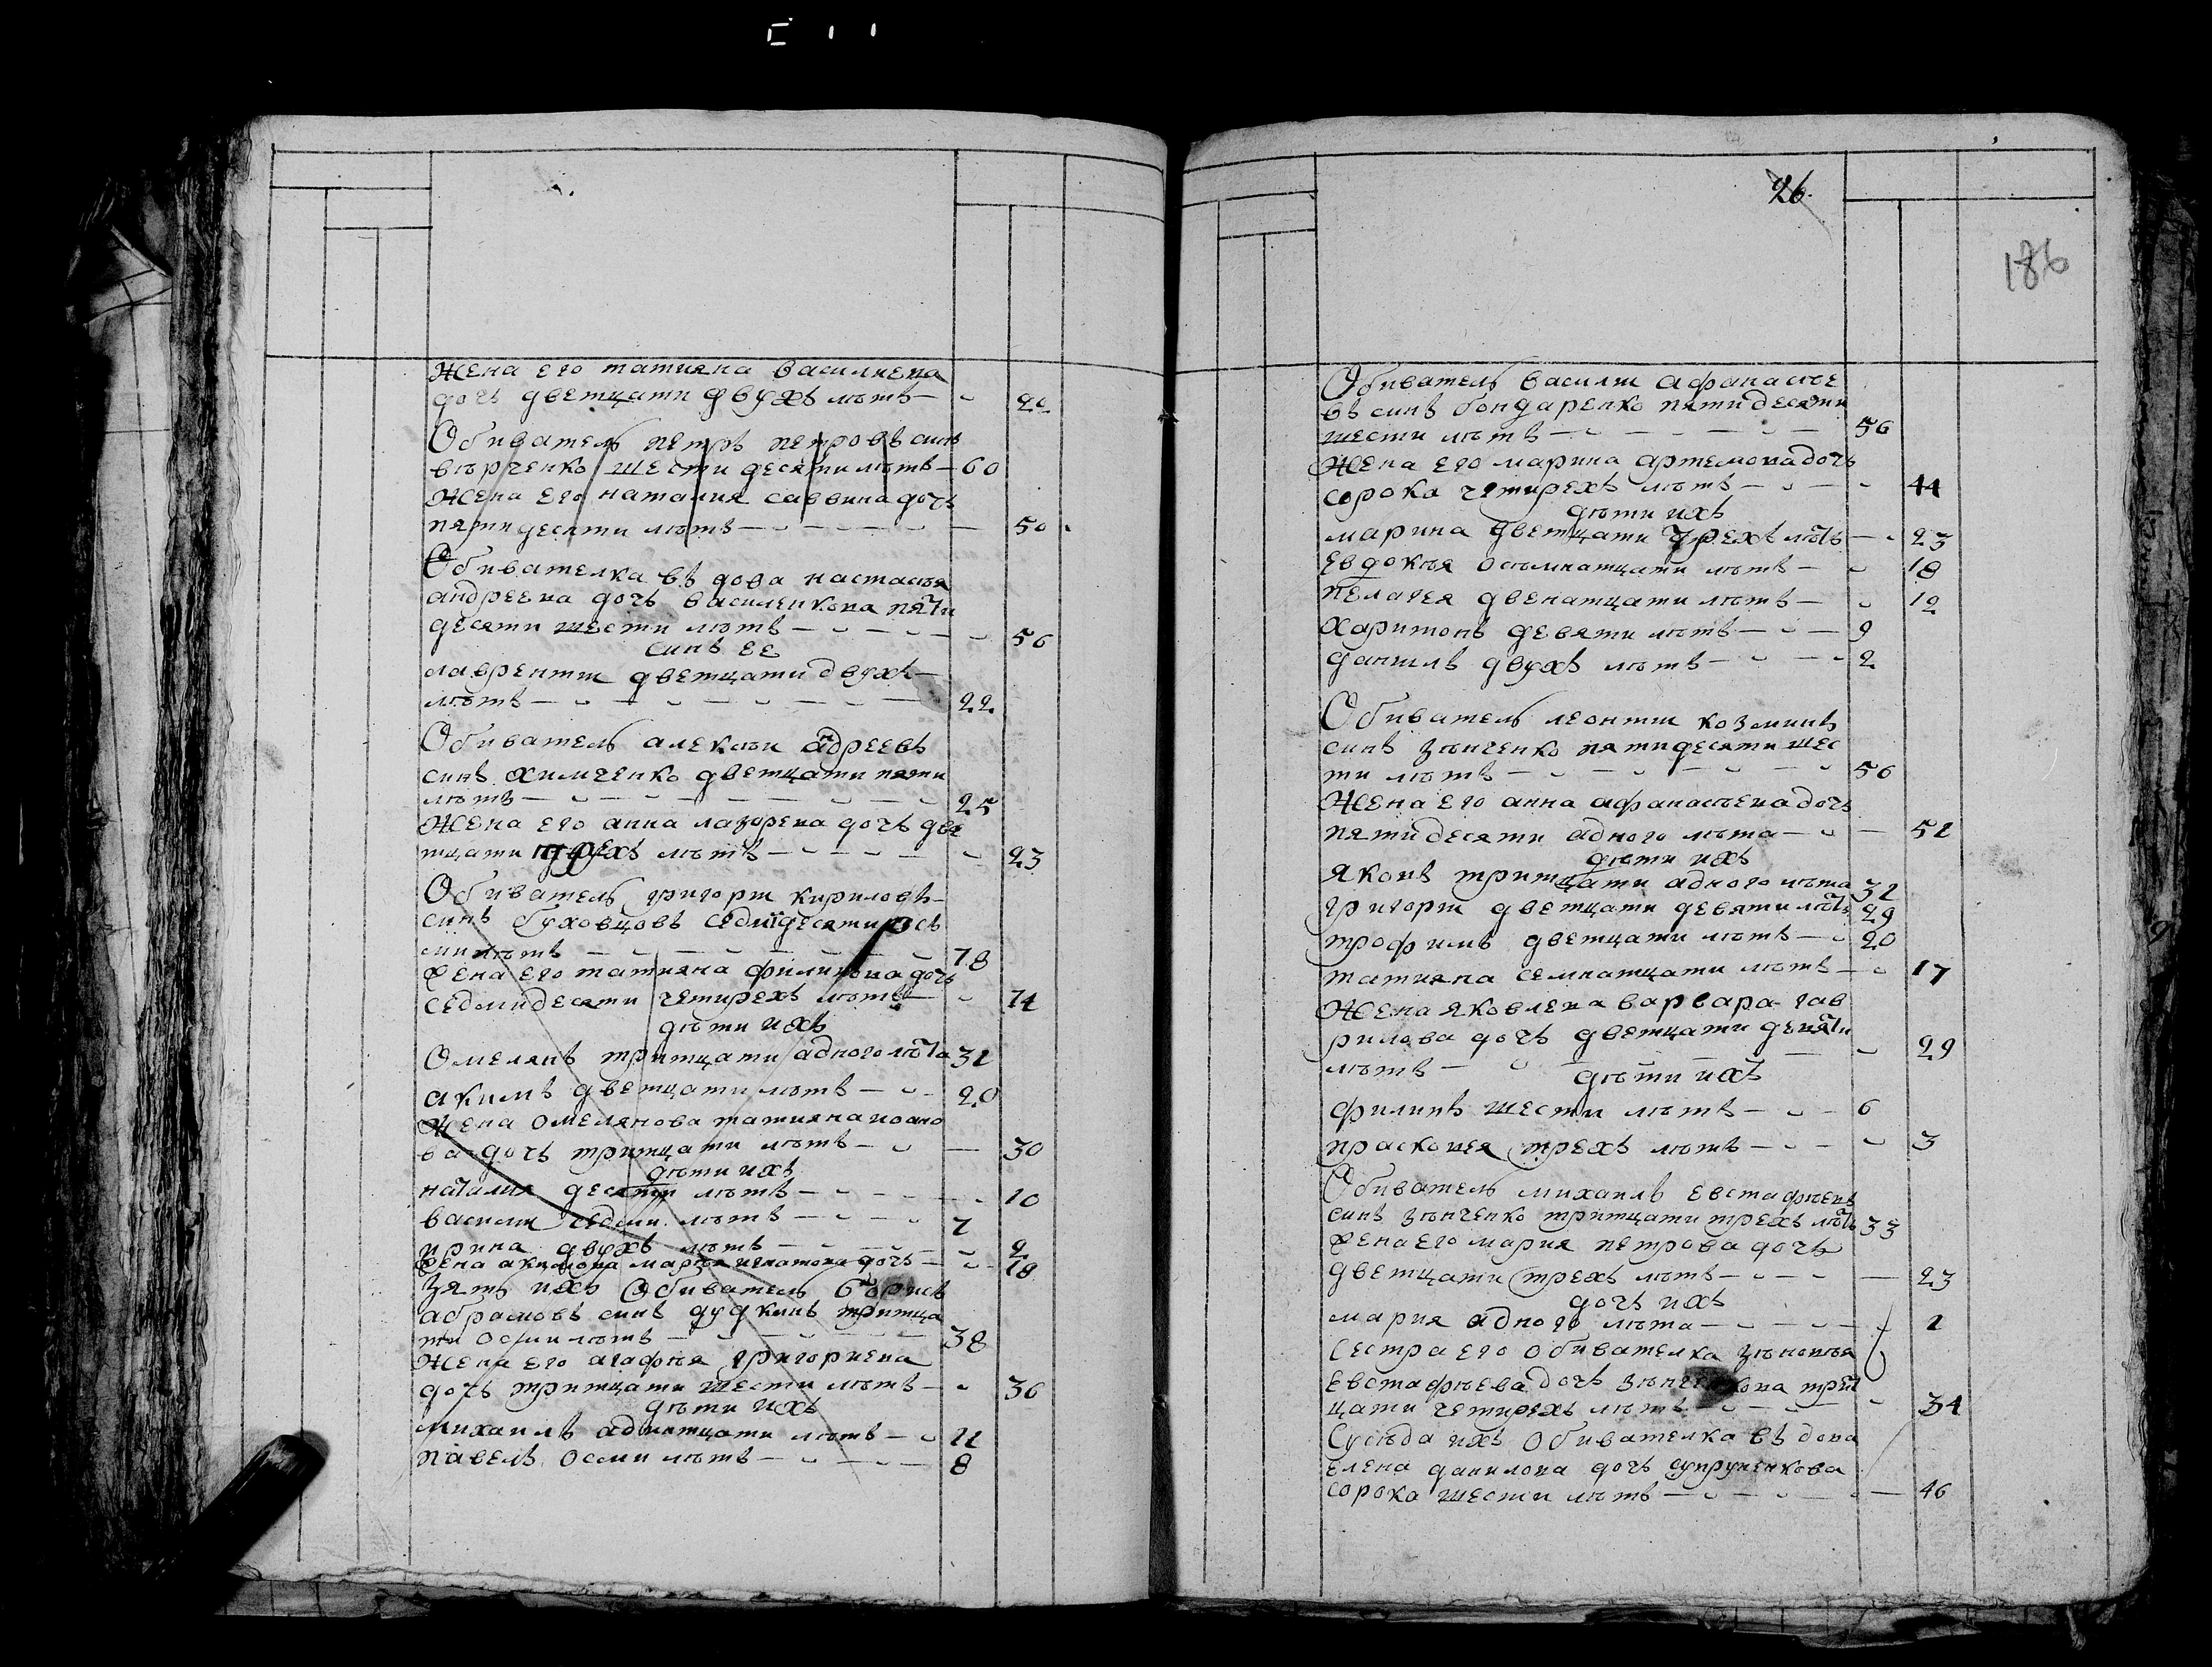 жена его татияна василиева
дочь дветцати двухъ лѣтъ — 22
Обиватель петръ петровъ синъ
вѣрченко шести десяти лѣтъ — 60
жена его наталия саввина дочь
пяти десяти лѣтъ — 50
Обивателка въдова настасѣя
андреева дочь василенкова пяти
десяти шести лѣтъ — 56
синъ ее
лаврентии дветцати двухъ
лѣтъ — 22
Обиватель алексѣи андреевъ
синъ химченко дветцати пяти
лѣтъ — 25
жена его анна лазорева дочь две
тцати трехъ лѣтъ — 23
Обиватель григории кириловъ
синъ буховцовъ седмидесяти ось
ми лѣтъ — 78
жена его татияна филипова дочь
седмидесяти четирехъ лѣтъ — 74
дѣти ихъ
Омелянъ тритцати адного лѣта 31
акимъ дветцати лѣтъ — 20
жена омелянова татияна иоано
ва дочь тритцати лѣтъ — 30
дѣти ихъ
наталия десяти лѣтъ — 10
василии седми лѣтъ — 7
ирина двухъ лѣтъ — 2
жена акимова марѣя игнатова дочь — 18
зять ихъ Обиватель борисъ
абрамовъ синъ дудкинъ тритца
ти осми лѣтъ — 38
жена его агафѣя григориева
дочь тритцати шести лѣтъ — 36
дѣти ихъ
михаилъ адинатцати лѣтъ — 11
павелъ осми лѣтъ — 8
26.
186
Обиватель василии афанасѣе
въ синъ бондаренко пятидесяти
шести лѣтъ — 56
жена его марина артемова дочь
сорока четирехъ лѣтъ — 44
дѣти ихъ
марина дветцати трехъ лѣтъ — 23
евдокѣя осьмнатцати лѣтъ — 18
пелагея двенатцати лѣтъ — 12
харитонъ девяти лѣтъ — 9
данилъ двухъ лѣтъ — 2
Обиватель леонтии козминъ
синъ зѣнченко пятидесяти шес
ти лѣтъ — 56
жена его анна афанасѣева дочь
пятидесяти адного лѣта — 51
дѣти ихъ
яковъ тритцати адного лѣта 31
григории дветцати девяти лѣтъ 29
трофимъ дветцати лѣтъ — 20
татияна семнатцати лѣтъ — 17
жена яковлева варвара гав
рилова дочь дветцати девяти
лѣтъ — 29
дѣти ихъ
филипъ шести лѣтъ — 6
прасковея трехъ лѣтъ — 3
Обиватель михаилъ евстафѣевъ
синъ зѣнченко тритцати трехъ лѣтъ 33
жена его мария петрова дочь
дветцати трехъ лѣтъ — 23
дочь ихъ
мария адного лѣта — 1
Сестра его обивателка зѣновѣя
евстафѣева дочь зѣнченкова трит
цати четирехъ лѣтъ — 34
Сусѣда ихъ Обивателка въдова
елена данилова дочь супруненкова
сорока шести лѣтъ — 46